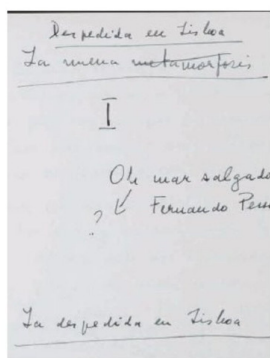 Despedida en Lisboa
La nueva metamorfosis
I
Oh mar salgado
? Fernando Pess
La despedida en Lisboa